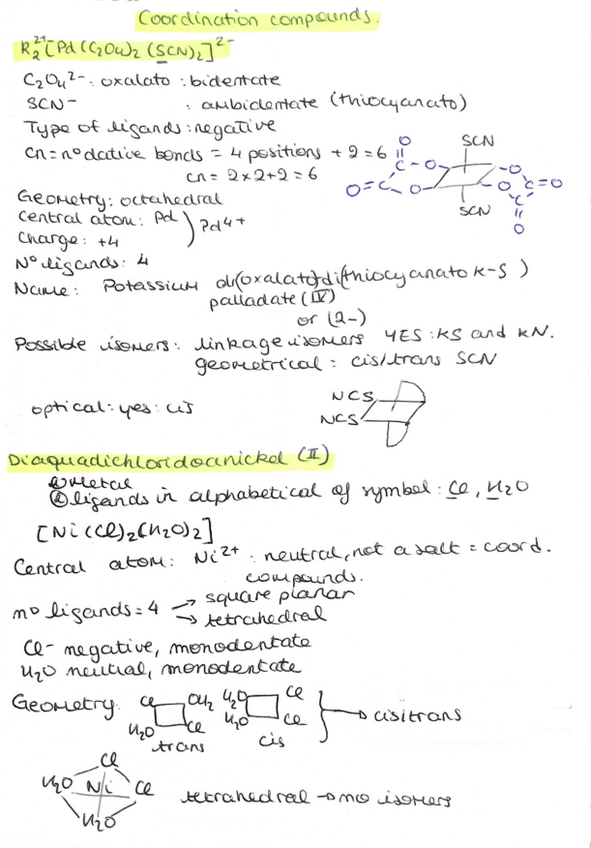 Coordination compounds.
K₂²⁺[Pd(C₂O₄)₂(SCN)₂]²⁻
C₂O₄²⁻: oxalato: bidentate
SCN⁻ : ambidentate (thiocyanato)
Type of ligands: negative
cn = nº dative bonds = 4 positions + 2 = 6
cn = 2×2+2 = 6
O SCN
O=C C-O O
O C=O
O C
SCN O
Geometry: octahedral
Central atom: Pd ) Pd⁴⁺
Charge: +4
Nº ligands: 4
Name: Potassium di(oxalato)di(thiocyanato K-S)
palladate (IV)
or (2-)
Possible isomers: linkage isomers YES: KS and KN.
geometrical: cis/trans SCN
optical: yes: cis
NCS
NCS
Diaquadichloridoanickel (II)
① Metal
② ligands in alphabetical of symbol: Cl, H₂O
[Ni(Cl)₂(H₂O)₂]
Central atom: Ni²⁺: neutral, not a salt = coord.
compounds.
nº ligands = 4 → square planar
→ tetrahedral
Cl⁻ negative, monodentate
H₂O neutral, monodentate
Geometry: Cl OH₂ H₂O Cl
H₂O Cl H₂O Cl → cis/trans
trans cis
Cl
H₂O Ni Cl tetrahedral → no isomers
H₂O